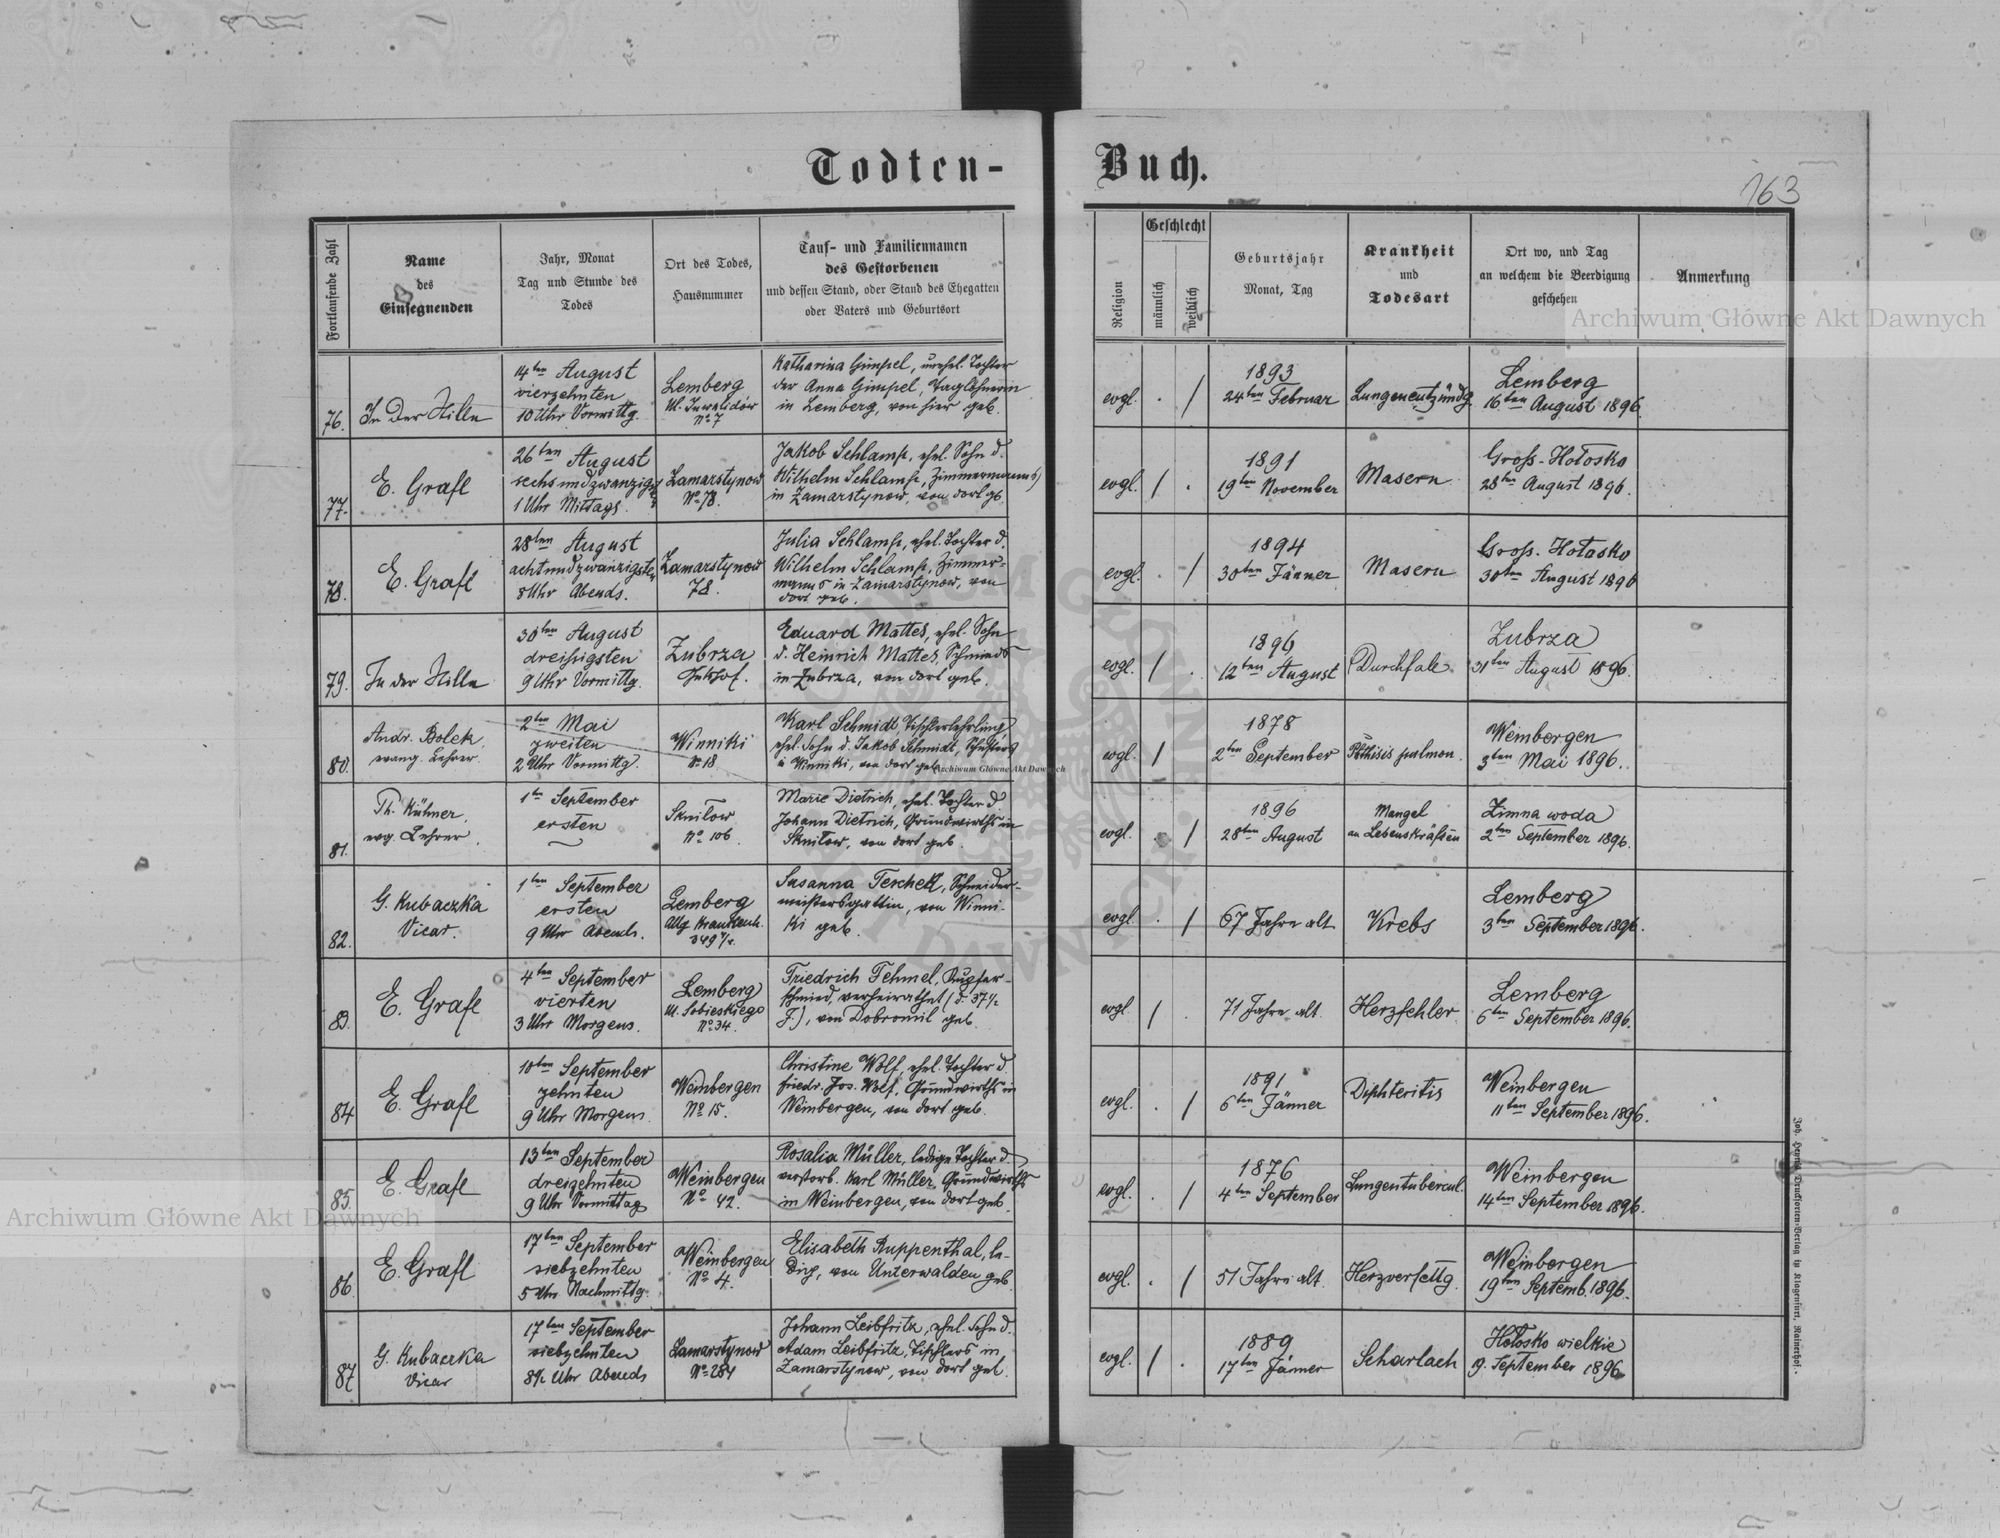 Todten-
Buch.
163
Fortlaufende Zahl
Name
des
Einsegnenden
Jahr, Monat
Tag und Stunde des
Todes
Ort des Todes,
Hausnummer
Tauf- und Familiennamen
des Gestorbenen
und dessen Stand, oder Stand des Ehegatten
oder Vaters und Geburtsort
Religion
Geschlecht
männlich
weiblich
Geburtsjahr
Monat, Tag
Krankheit
und
Todesart
Ort wo, und Tag
an welchem die Beerdigung
geschehen
Anmerkung
76.
In der Stille
14ten August
vierzehnten
10 Uhr Vormittg.
Lemberg
Ul. Inwalidów
No 7
Katharina Gimpel, unehel. Tochter
der Anna Gimpel, Taglöhnerin
in Lemberg, von hier geb.
evgl. . /
1893
24ten Februar
Lungenentzündg
Lemberg
16ten August 1896.
77.
E. Grafl
26ten August
sechsundzwanzigsten
1 Uhr Mittags.
Zamarstynow
No 78.
Jakob Schlamp, ehel. Sohn d.
Wilhelm Schlamp, Zimmermanns
in Zamarstynow, von dort gb.
evgl. / .
1891
19ten November
Masern
Gross-Hołosko
28ten August 1896.
78.
E. Grafl
28ten August
achtundzwanzigsten
8 Uhr Abends.
Zamarstynow
78.
Julia Schlamp, ehel. Tochter d.
Wilhelm Schlamp, Zimmer-
manns in Zamarstynow, von
dort geb.
evgl. . /
1894
30ten Jänner
Masern
Gross. Hołosko
30ten August 1896
79.
In der Stille
30ten August
dreissigsten
9 Uhr Vormittg.
Zubrza
Gutshof.
Eduard Mattes, ehel. Sohn
d. Heinrich Mattes, Schmieds
in Zubrza, von dort geb.
evgl. / .
1896
12ten August
Durchfall
Zubrza
31ten August 1896.
80.
Andr. Bolek
evang. Lehrer
2ten Mai
zweiten
2 Uhr Vormittg.
Winniki
No 18
Karl Schmidt, Tischlerlehrling
ehel. Sohn d. Jakob Schmidt, Schusters
in Winniki, von dort geb.
evgl. /
1878
2ten September
Phthisis pulmon.
Weinbergen
3ten Mai 1896.
81.
Th. Kühner,
evg. Lehrer.
1ten September
ersten
Sknilow
No 106
Marie Dietrich, ehel. Tochter d.
Johann Dietrich, Grundwirths in
Sknilow, von dort geb.
evgl. /
1896
28ten August
Mangel
an Lebenskräften
Zimna woda
2ten September 1896.
82.
G. Kubaczka
Vicar.
1ten September
ersten
9 Uhr Abends.
Lemberg
Allg Krankenh.
349 1/4.
Susanna Terchek, Schneider-
meistersgattin, von Winni-
ki geb.
evgl. . /
67 Jahre alt
Krebs
Lemberg
3ten September 1896.
83.
E. Grafl
4ten September
vierten
3 Uhr Morgens.
Lemberg
Ul. Sobieskiego
No 34.
Friedrich Fehmel, Kupfer-
schmied, verheirathet (d. 37 1/2
J.), von Dobromil geb.
evgl. / .
71 Jahre alt.
Herzfehler
Lemberg
6ten September 1896.
84
E. Grafl
10ten September
zehnten
9 Uhr Morgens.
Weinbergen
No 15.
Christine Wolf, ehel. Tochter d.
Friedr. Jos. Wolf, Grundwirths in
Weinbergen, von dort geb.
evgl. . /
1891
6ten Jänner
Diphteritis
Weinbergen
11ten September 1896.
85.
E. Grafl
13ten September
dreizehnten
9 Uhr Vormittag
Weinbergen
No 42.
Rosalia Müller, ledige Tochter d
verstorb. Karl Müller, Grundwirths
in Weinbergen, von dort geb.
evgl. . /
1876
4ten September
Lungentubercul.
Weinbergen
14ten September 1896.
86.
E. Grafl
17ten September
siebzehnten
5 Uhr Nachmittg.
Weinbergen
No 4.
Elisabeth Ruppenthal, le-
dig, von Unterwalden geb
evgl. . /
51 Jahre alt
Herzverfettg.
Weinbergen
19ten Septemb. 1896.
87
G. Kubaczka
Vicar
17ten September
siebzehnten
8 1/2 Uhr Abends
Zamarstynow
No 284
Johann Leibfritz, ehel. Sohn d.
Adam Leibfritz, Tischlers in
Zamarstynow, von dort geb.
evgl. / .
1889
17ten Jänner
Scharlach
Hołosko wielkie
19. September 1896
Archiwum Główne Akt Dawnych
Archiwum Główne Akt Dawnych
Archiwum Główne Akt Dawnych